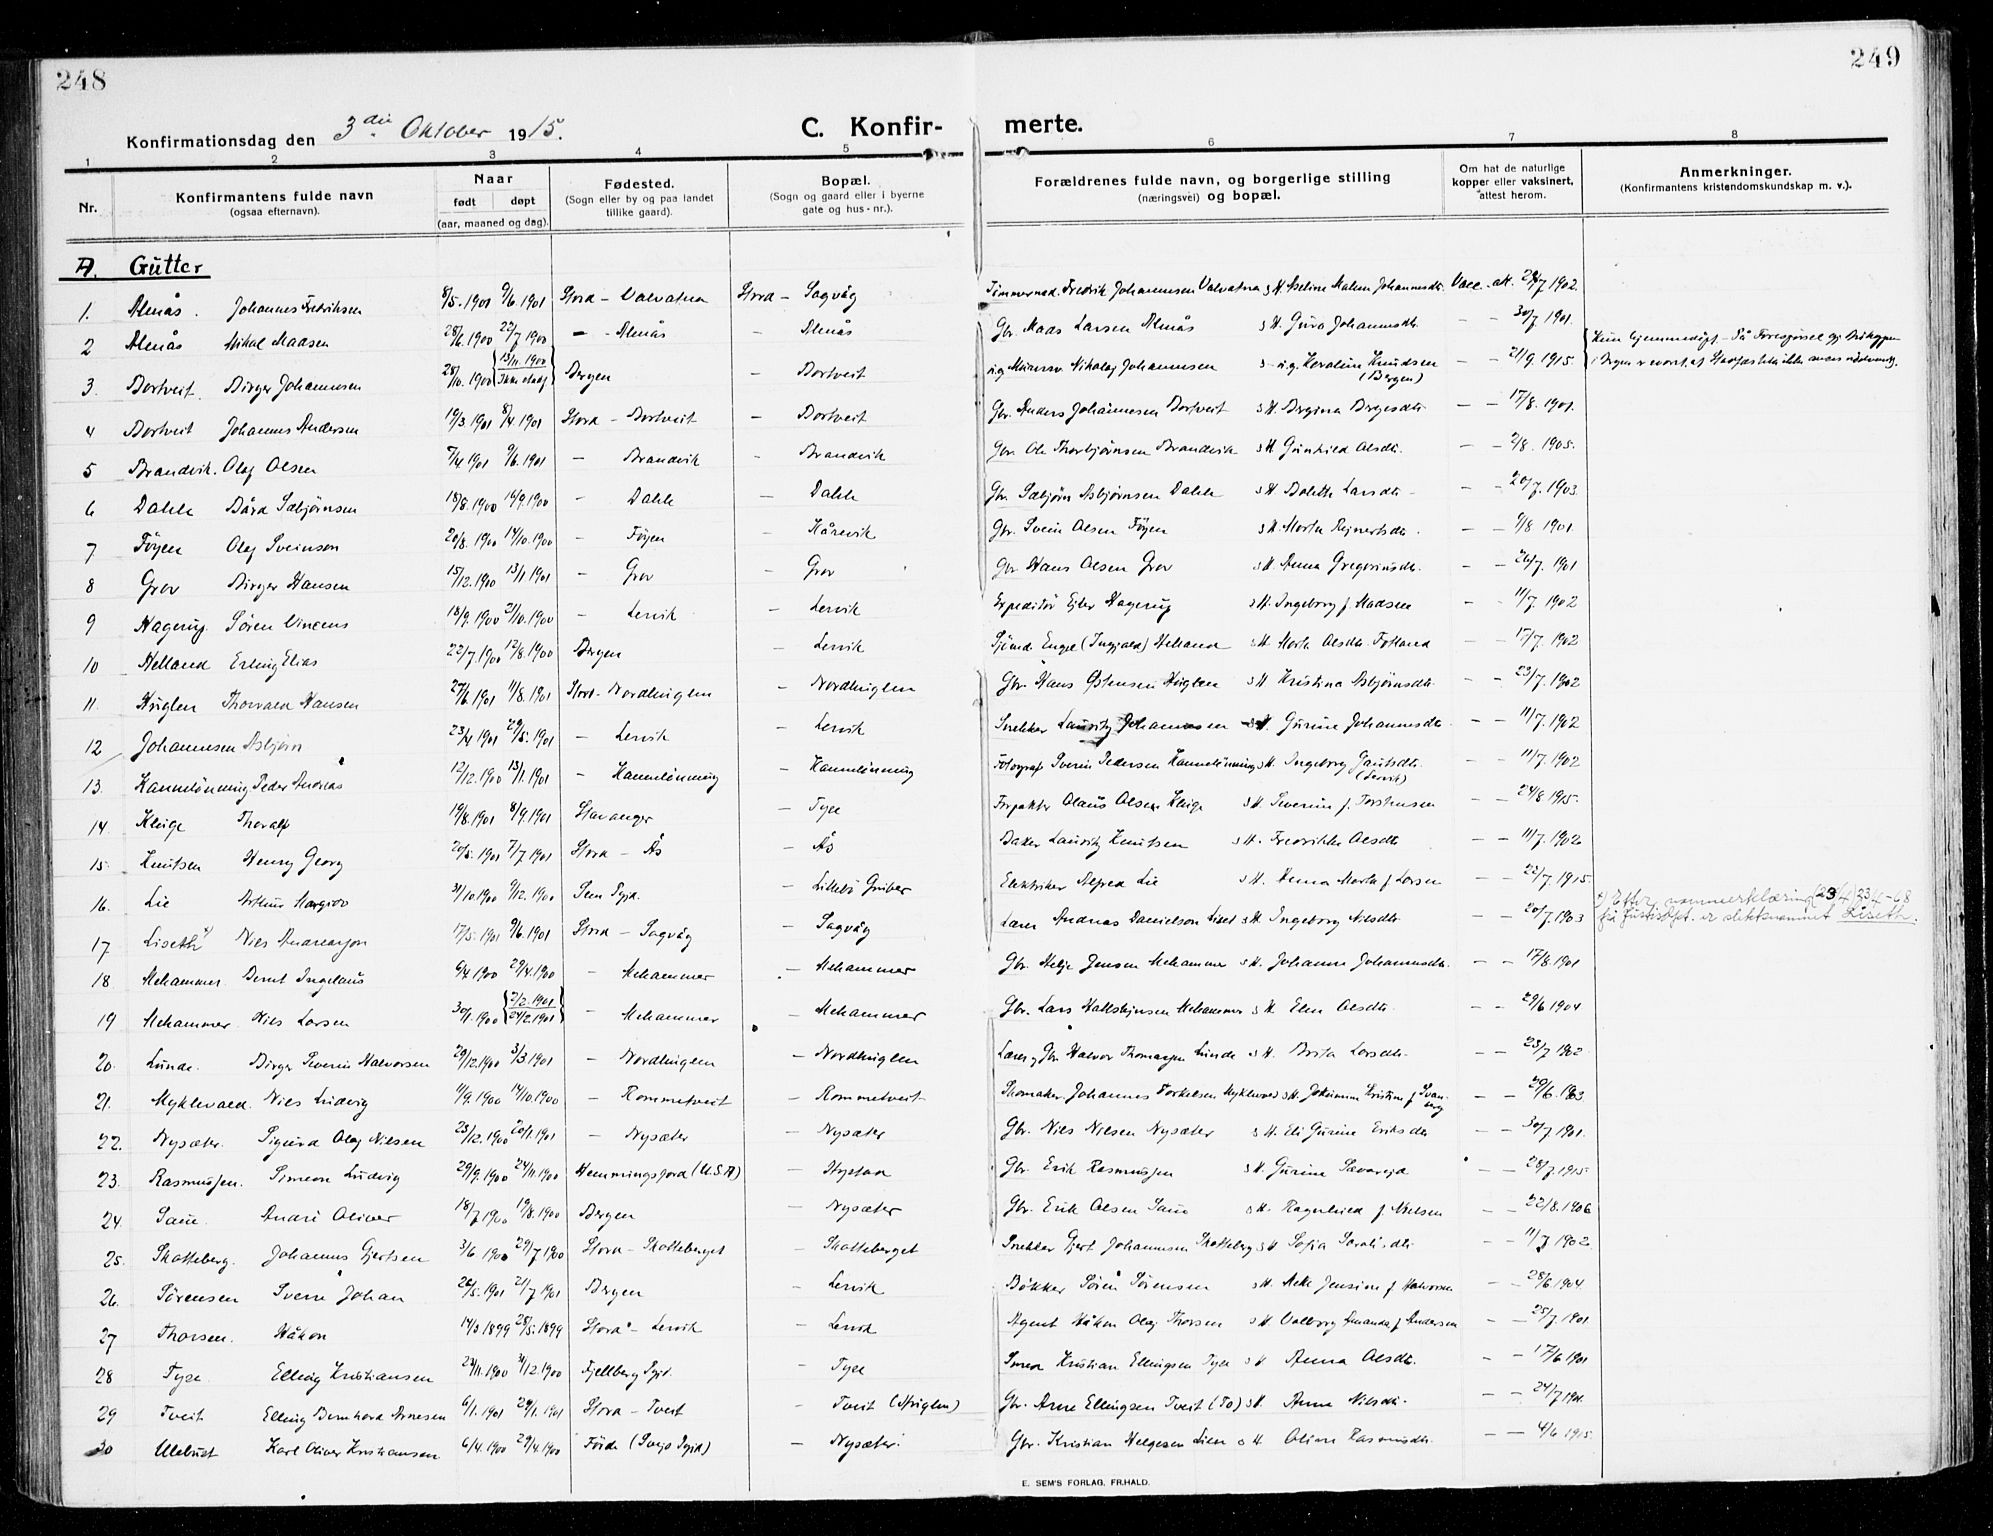 248
249
Konfirmationsdag den 3die Oktober 1915.
C. Konfirmerte.
1 2 3 4 5 6 7 8
Nr. Konfirmantens fulde navn (ogsaa efternavn). Naar født døpt (aar, maaned og dag). Fødested. (Sogn eller by og paa landet tillike gaard). Bopæl. (Sogn og gaard eller i byerne gate og hus-nr.). Forældrenes fulde navn, og borgerlige stilling (næringsvei) og bopæl. Om hat de naturlige kopper eller vaksinert, attest herom. Anmerkninger. (Konfirmantens kristendomskundskap m. v.).
A. Gutter
1. Almås. Johannes Fredriksen 8/5.1901 9/6.1901 Stord – Valvatna Stord – Sagvåg Tømmermd. Fredrik Johannesen Valvatna s H. Aseline Malene Johannesdtr. Vacc. att. 29/7 1902.
2 Almås Mikal Maasen 28/6 1900 22/7 1900 – – Almås – Almås Gbr. Maas Larsen Almås s H. Guro Johannesdtr. – – 30/7 1901.
3 Dortveit. Birger Johannesen 28/10.1900 13/11.1900 Bergen – Dortveit Nikolaj Johannesen Knudsen (Bergen) – – 21/9.1915.
4 Dortveit Johannes Andersen 19/3 1901 8/4.1901 Stord – Dortveit – Dortveit Gbr. Anders Johannesen Dortveit s H. Bergina Bergesdtr. – – 17/8.1901.
5 Brandvik. Olaf Olsen 7/4 1901 9/6.1901 – Brandvik – Brandvik Gbr. Ole Thorbjørnsen Brandvik s H. Gunhild Olsdtr. – – 2/8.1905.
6 Dahle Bård Sæbjørnsen 18/8.1900 16/9.1900 – Dahle – Dahle Gbr. Sæbjørn Asbjørnsen Dahle s H. Bolette Larsdtr. – – 20/7.1903.
7 Føyen Olaf Sveinson 20/8.1900 14/10.1900 – Føyen – Hårevik Gbr. Svein Olsen Føyen s H. Marta Rejnertsdtr. – – 9/8.1901
8 Grov Birger Hansen 15/12.1900 13/1 1901 – Grov – Grov Gbr. Hans Olsen Grov s H. Anna Gregoriusdtr. – – 26/7.1901
9 Hagerup. Søren Vincens 18/9.1900 21/10.1900 – Lervik – Lervik Expeditør Ejler Hagerup s H. Ingeborg f. Madsen – – 11/7.1902
10 Helland Erling Elias 22/7.1900 12/8.1900 Bergen – Lervik Sjømd. Engel (Ingjald) Helland s H. Marta Olsdtr. Fotland – – 17/7.1902
11. Huglen Thorvald Hansen 27/6.1901 11/8.1901 Stord – Nordhuglen – Nordhuglen Gbr. Hans Østensen Huglen s H. Kristina Asbjørnsdtr. – – 23/7.1902
12 Johannesen Asbjørn 23/4 1901 29/5.1901 – Lervik – Lervik Snekker Lauritz Johannesen s H. Gurine Johannesdtr. – – 11/7.1902
13. Hammlønning Peder Andreas 12/12.1900 13/1.1901 – Hammlønning – Hammlønning Fotograf Sverin Pedersen Hammlønning s H. Ingeborg Gautsdtr. (Lervik) – – 11/7.1902
14. Kluge Thoralf 19/8.1901 8/9.1901 Stavanger – Tyse Forpakter Olaus Olsen Kluge s H. Severine f. Torstensen – – 24/8 1915.
15. Knutsen Henry Georg 20/5.1901 7/7 1901 Stord – Ås – Ås Baker Lauritz Knutsen s H. Fredrikke Olsdtr. – – 11/7.1902
16. Lie Arthur Margido 31/10.1900 9/12.1900 Sem Pgjd. – Litlebø Gruber Elektriker Alfred Lie s H. Anna Marta f. Larsen – – 22/7.1915.
17. Liseth *) Nils Andreasjon 17/5.1901 9/6.1901 Stord – Sagvåg – Sagvåg Lærer Andreas Danielson Liset s H. Ingeborg Nilsdtr. – – 20/7.1903 *) Efter navneerklæring (23/4) 23/4-68 frå Justisdpt. er slektsnavnet Liseth.
18. Mehammer. Bernt Ingelaus 6/4 1900 29/4.1900 – Mehammer – Mehammer Gbr. Helje Jensen Mehammer s H. Johanne Johannesdtr. – – 17/8.1901
19 Mehammer. Nils Larsen 30/1.1900 7/2.1901 24/2.1901 – Mehammer – Mehammer Gbr. Lars Mehammer s H. Elen Olsdtr. – – 29/6 1904
20. Lunde. Birger Severin Halvorsen 29/12.1900 3/3.1901 – Nordhuglen – Nordhuglen Lærer og Gbr. Halvor Thomasjen Lunde s H. Brita Larsdtr. – – 23/7 1902
21. Myklevold. Nils Ludvig 11/9.1900 14/10.1900 – Rommetveit – Rommetveit Skomaker Johannes Torkelsen Myklevold s H. Kristine f. Svanberg – – 29/6.1903.
22. Nysæter. Sigurd Olaf Nilsen 23/12.1900 20/1.1901 – Nysæter – Nysæter Gbr. Nils Nilsen Nysæter s H. Eli Gurine Eriksdtr – – 30/7 1901.
23. Rasmusjen. Simeon Ludvig 29/9.1900 24/11.1900 Hemmingsfjord (U.S.A) – Hystad Gbr. Erik Rasmusjen s H. Gurine Sævareid – – 28/7.1915.
24. Saue. André Oliver 18/7.1900 19/8.1900 Bergen – Nysæter Gbr. Erik Olsen Saue s H. Ragnhild f. Nielsen – – 22/8.1906
25. Skatteberg. Johannes Gjertsen 3/6 1900 29/7 1900 Stord – Skatteberget – Skatteberget Snekker Gjert Johannesen Skatteberg s H Sofia Saralisdtr – – 11/7 1902
26. Sørensen Sverre Johan 26/5.1901 21/7 1901 Bergen – Lervik Bøkker Søren Sørensen s H. Jensine f. Halvorsen – – 28/6 1904.
27 Thorsen. Håkon 14/3 1899 28/5.1899 Stord – Lervik – Lervik Agent Håkon Olaj Thorsen s H. Valborg Amanda f. Andersen – – 25/7.1901.
28 Tyse. Elling Kristiansen 23/11.1900 31/12.1900 Fjellberg Pgjd. – Tyse Smed Kristian Ellingsen Tyse s H Anna Olsdtr. – – 17/6 1901
29 Tveit Elling Bernhard Arnesen 6/1.1901 29/1.1901 Stord – Tveit – Tveit (Huglen) Gbr. Arne Ellingsen Tveit (To) s H. Anna Nilsdtr. – – 24/7 1901.
30 Ullebust Karl Oliver Kristiansen 6/4.1900 29/4.1900 Førde (Sveio Pgjd) – Nysæter. Gbr. Kristian Helgesen Lien s H Oline Rasmusdtr. – – 4/6 1915.
E. SEM'S FORLAG, FR.HALD.